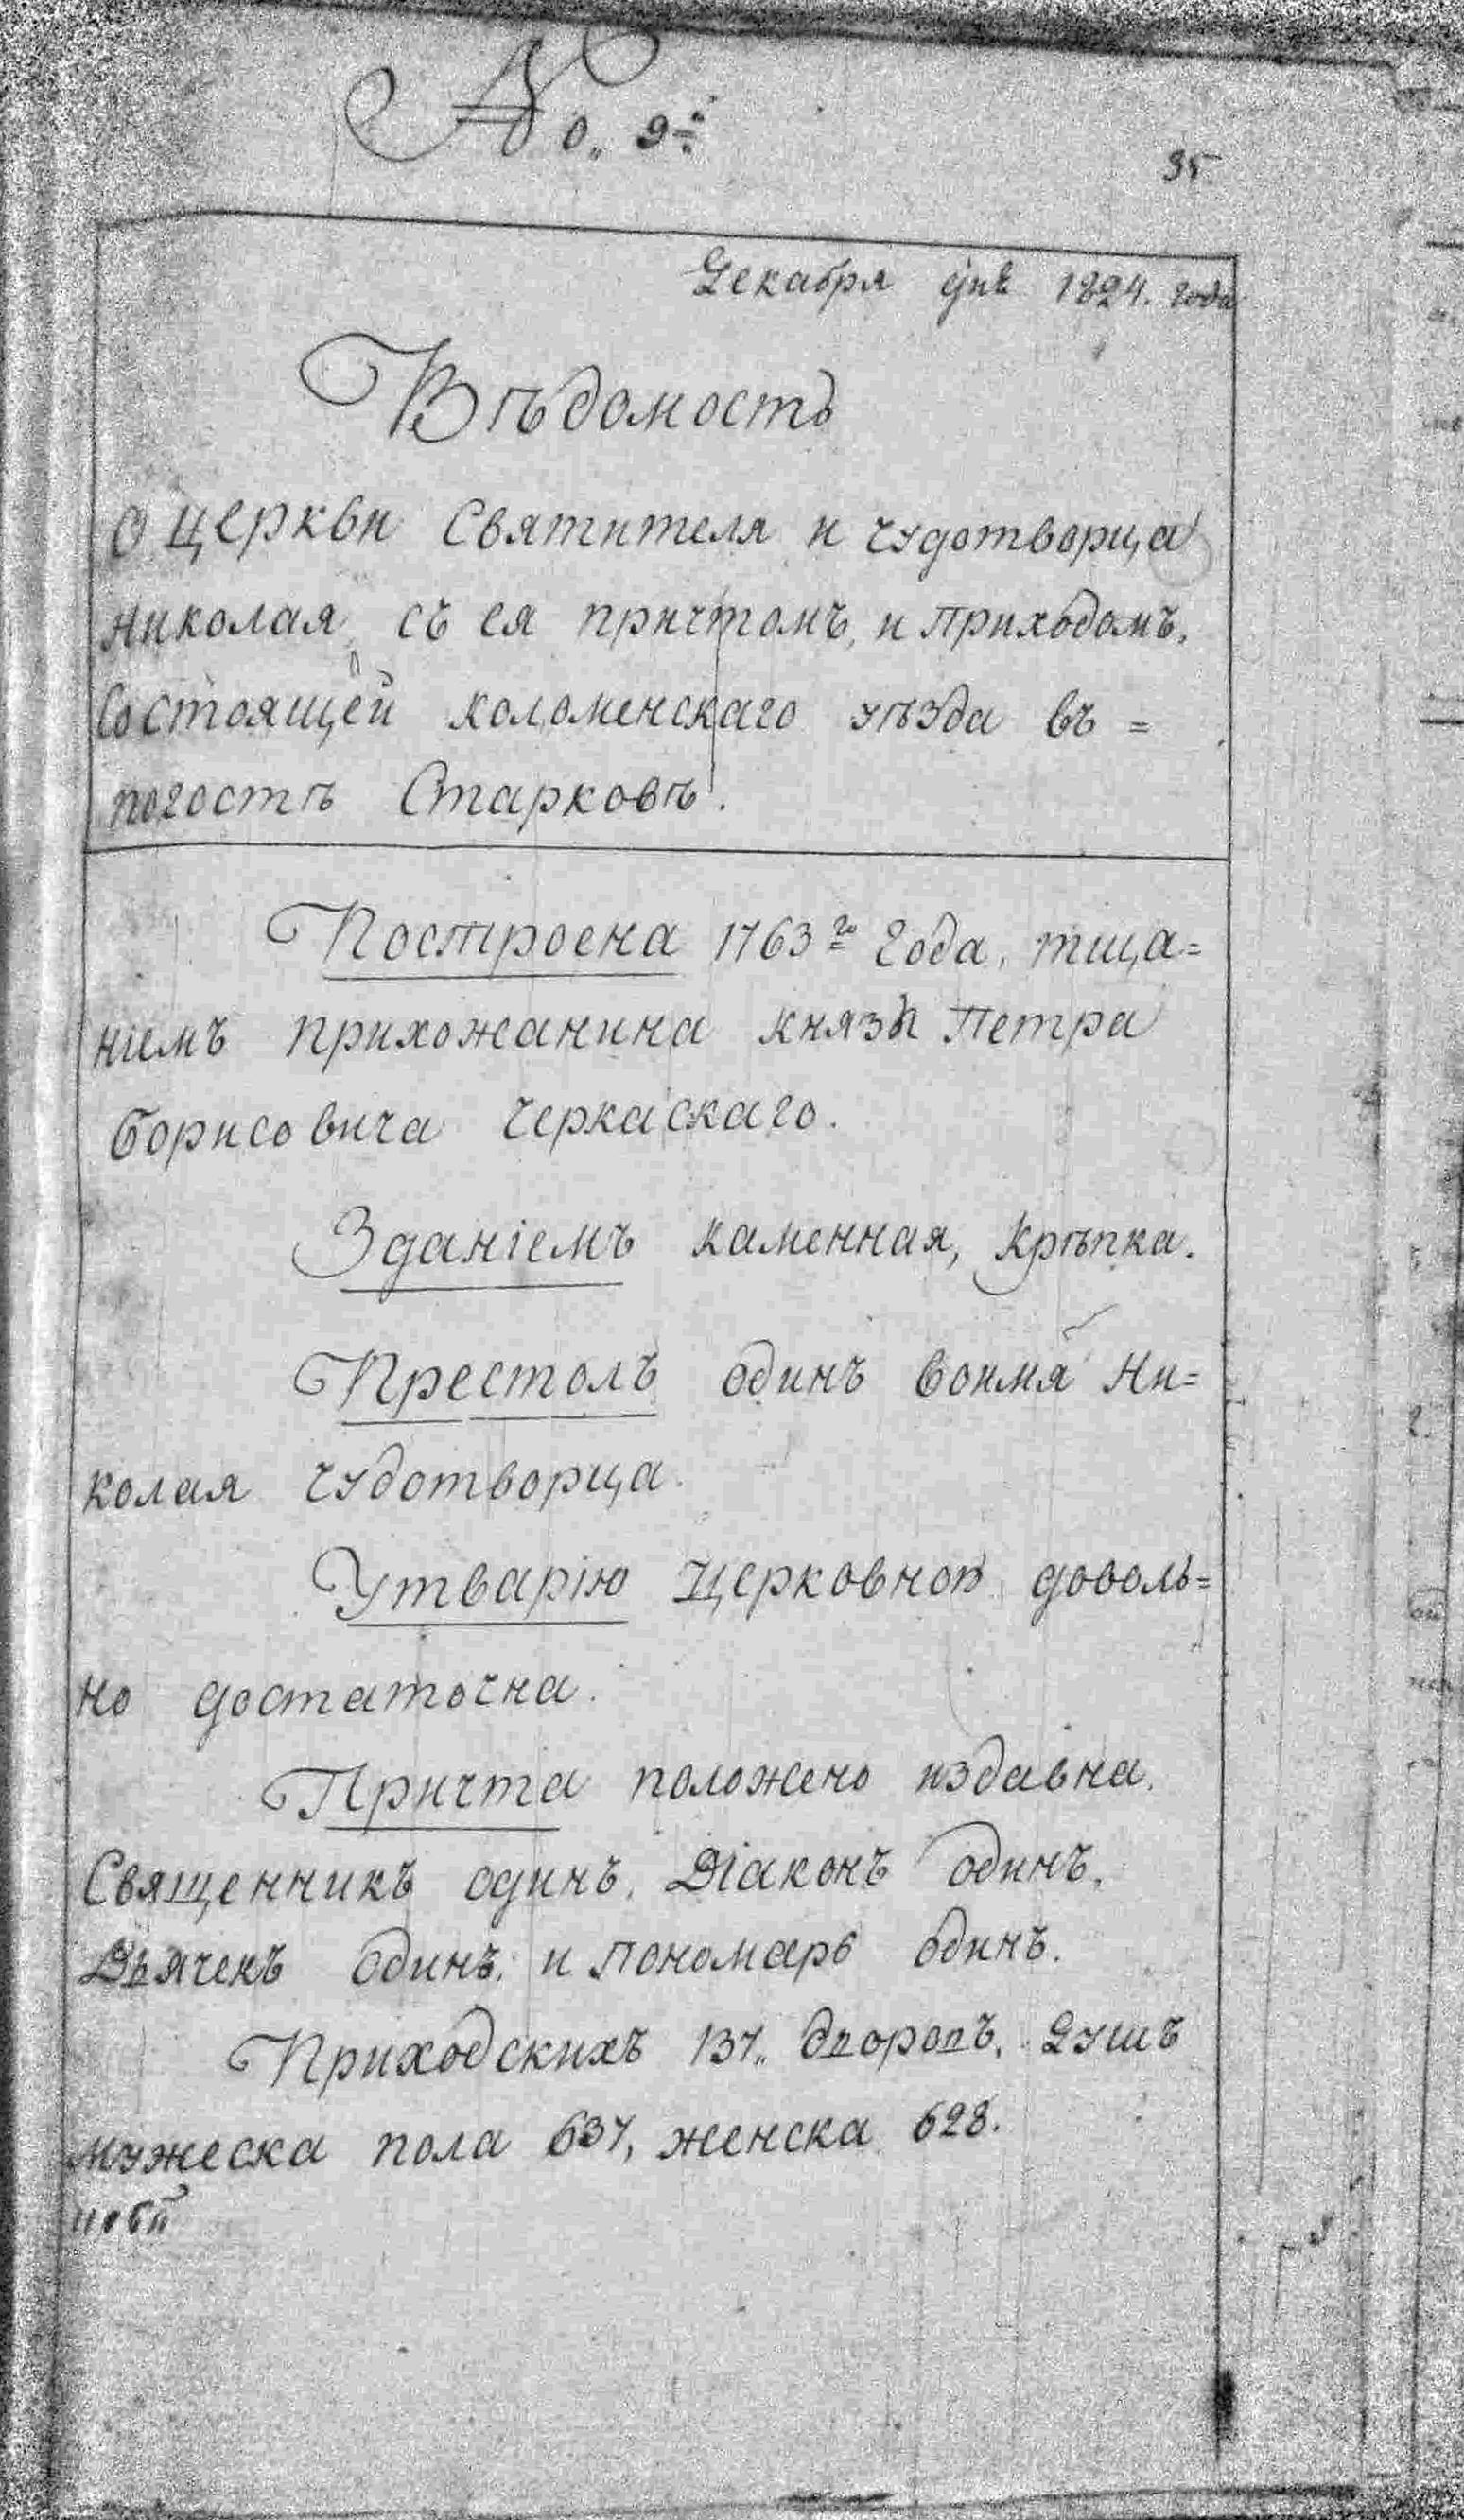 No. 9й
95
Декабря дня 1824. года
Вѣдомость
О церкви Святителя и чудотворца
Николая, съ ея причтомъ, и приходомъ,
Состоящей Коломенскаго уѣзда въ =
погостѣ Старковѣ.
Построена 1763го года, тща=
ніемъ прихожанина князя Петра
Борисовича Черкаскаго.
Зданіемъ каменная, крѣпка.
Престолъ одинъ воимя Ни=
колая чудотворца.
Утварію церковной доволь=
но достаточна.
Причта положено издавна.
Священникъ одинъ, Діаконъ одинъ,
Дьячекъ одинъ, и пономарь одинъ.
Приходскихъ 137. дворовъ, душъ
мужеска пола 637, женска 628.